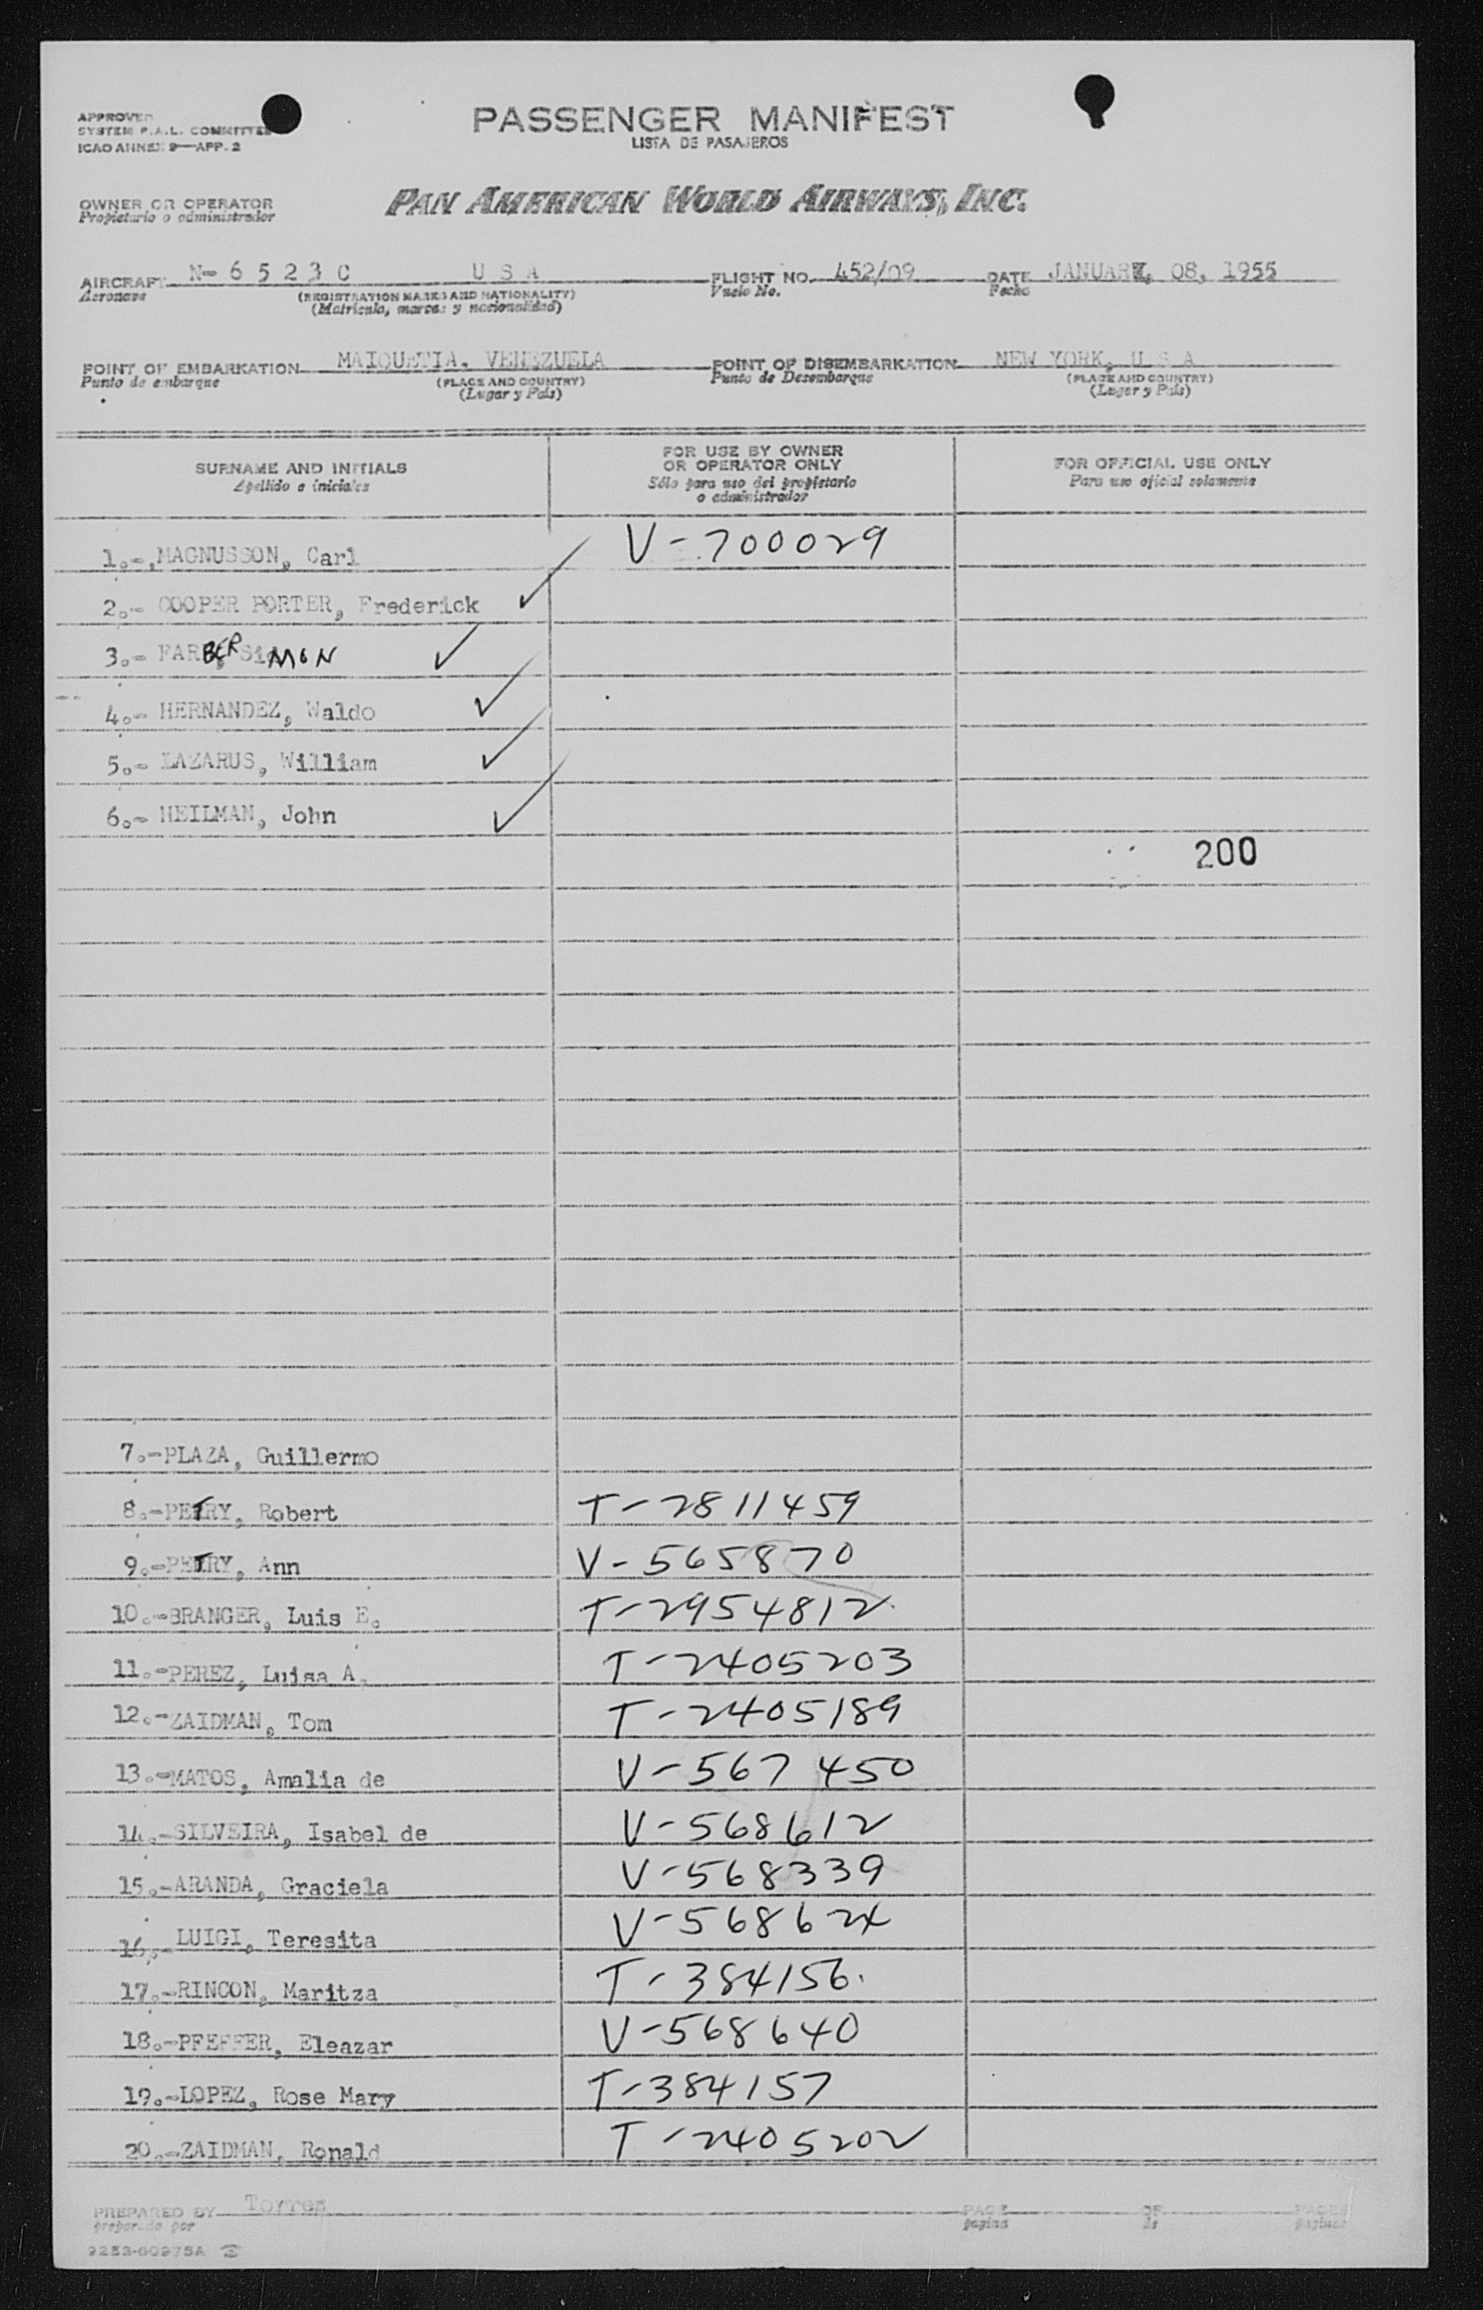 APPROVED
SYSTEM P.A.L. COMMITTEE
ICAO ANNEX 9—APP. 2
PASSENGER MANIFEST
LISTA DE PASAJEROS
OWNER OR OPERATOR
Propietario o administrador
PAN AMERICAN WORLD AIRWAYS, INC.
AIRCRAFT N- 6 5 2 3 C U S A FLIGHT NO. 452/09 DATE JANUARY, 08, 1955
Aeronave (REGISTRATION MARKS AND NATIONALITY) Vuelo No. Fecha
(Matrícula, marcas y nacionalidad)
POINT OF EMBARKATION MAIQUETIA. VENEZUELA POINT OF DISEMBARKATION NEW YORK, U S A
Punto de embarque (PLACE AND COUNTRY) Punto de Desembarque (PLACE AND COUNTRY)
(Lugar y País) (Lugar y País)
SURNAME AND INITIALS
Apellido e iniciales
FOR USE BY OWNER
OR OPERATOR ONLY
Sólo para uso del propietario
o administrador
FOR OFFICIAL USE ONLY
Para uso oficial solamente
1.- MAGNUSSON, Carl V-700029
2.- COOPER PORTER, Frederick
3.- FARBER SiMON
4.- HERNANDEZ, Waldo
5.- LAZARUS, William
6.- HEILMAN, John
200
7.-PLAZA, Guillermo
8.-PETRY, Robert T-2811459
9.-PETRY, Ann V-565870
10.-BRANGER, Luis E. T-2954812
11.-PEREZ, Luisa A. T-2405203
12.-ZAIDMAN, Tom T-2405189
13.-MATOS, Amalia de V-567450
14.-SILVEIRA, Isabel de V-568612
15.-ARANDA, Graciela V-568339
16.- LUIGI, Teresita V-568624
17.-RINCON, Maritza T-384156.
18.-PFEFFER, Eleazar V-568640
19.-LOPEZ, Rose Mary T-384157
20.-ZAIDMAN, Ronald T-2405202
PREPARED BY Torres PAGE OF PAGES
preparado por pagina de paginas
9253-60975A